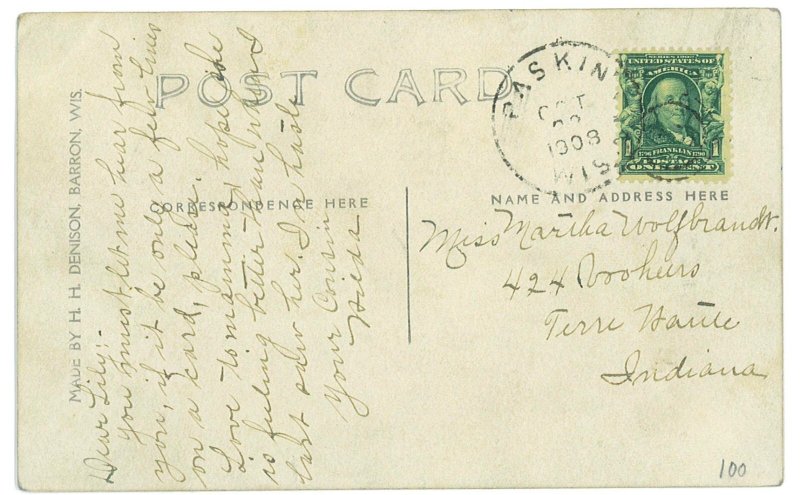 POST CARD
MADE BY H. H. DENISON, BARRON, WIS.
CORRESPONDENCE HERE
NAME AND ADDRESS HERE
Dear Lily:-
You must let me hear from
you, if it be only a few lines
on a card, please.
Love to mamma, hope she
is feeling better than when I
last saw her. In haste
Your Cousin
Hilda
BASKIN
OCT
1908
WIS
SERIES 1902
UNITED STATES OF
AMERICA
1 1
1706 FRANKLIN 1790
POSTAGE
ONE CENT
Miss Martha Wolfbrandt.
424 Voorheis
Terre Haute
Indiana
100